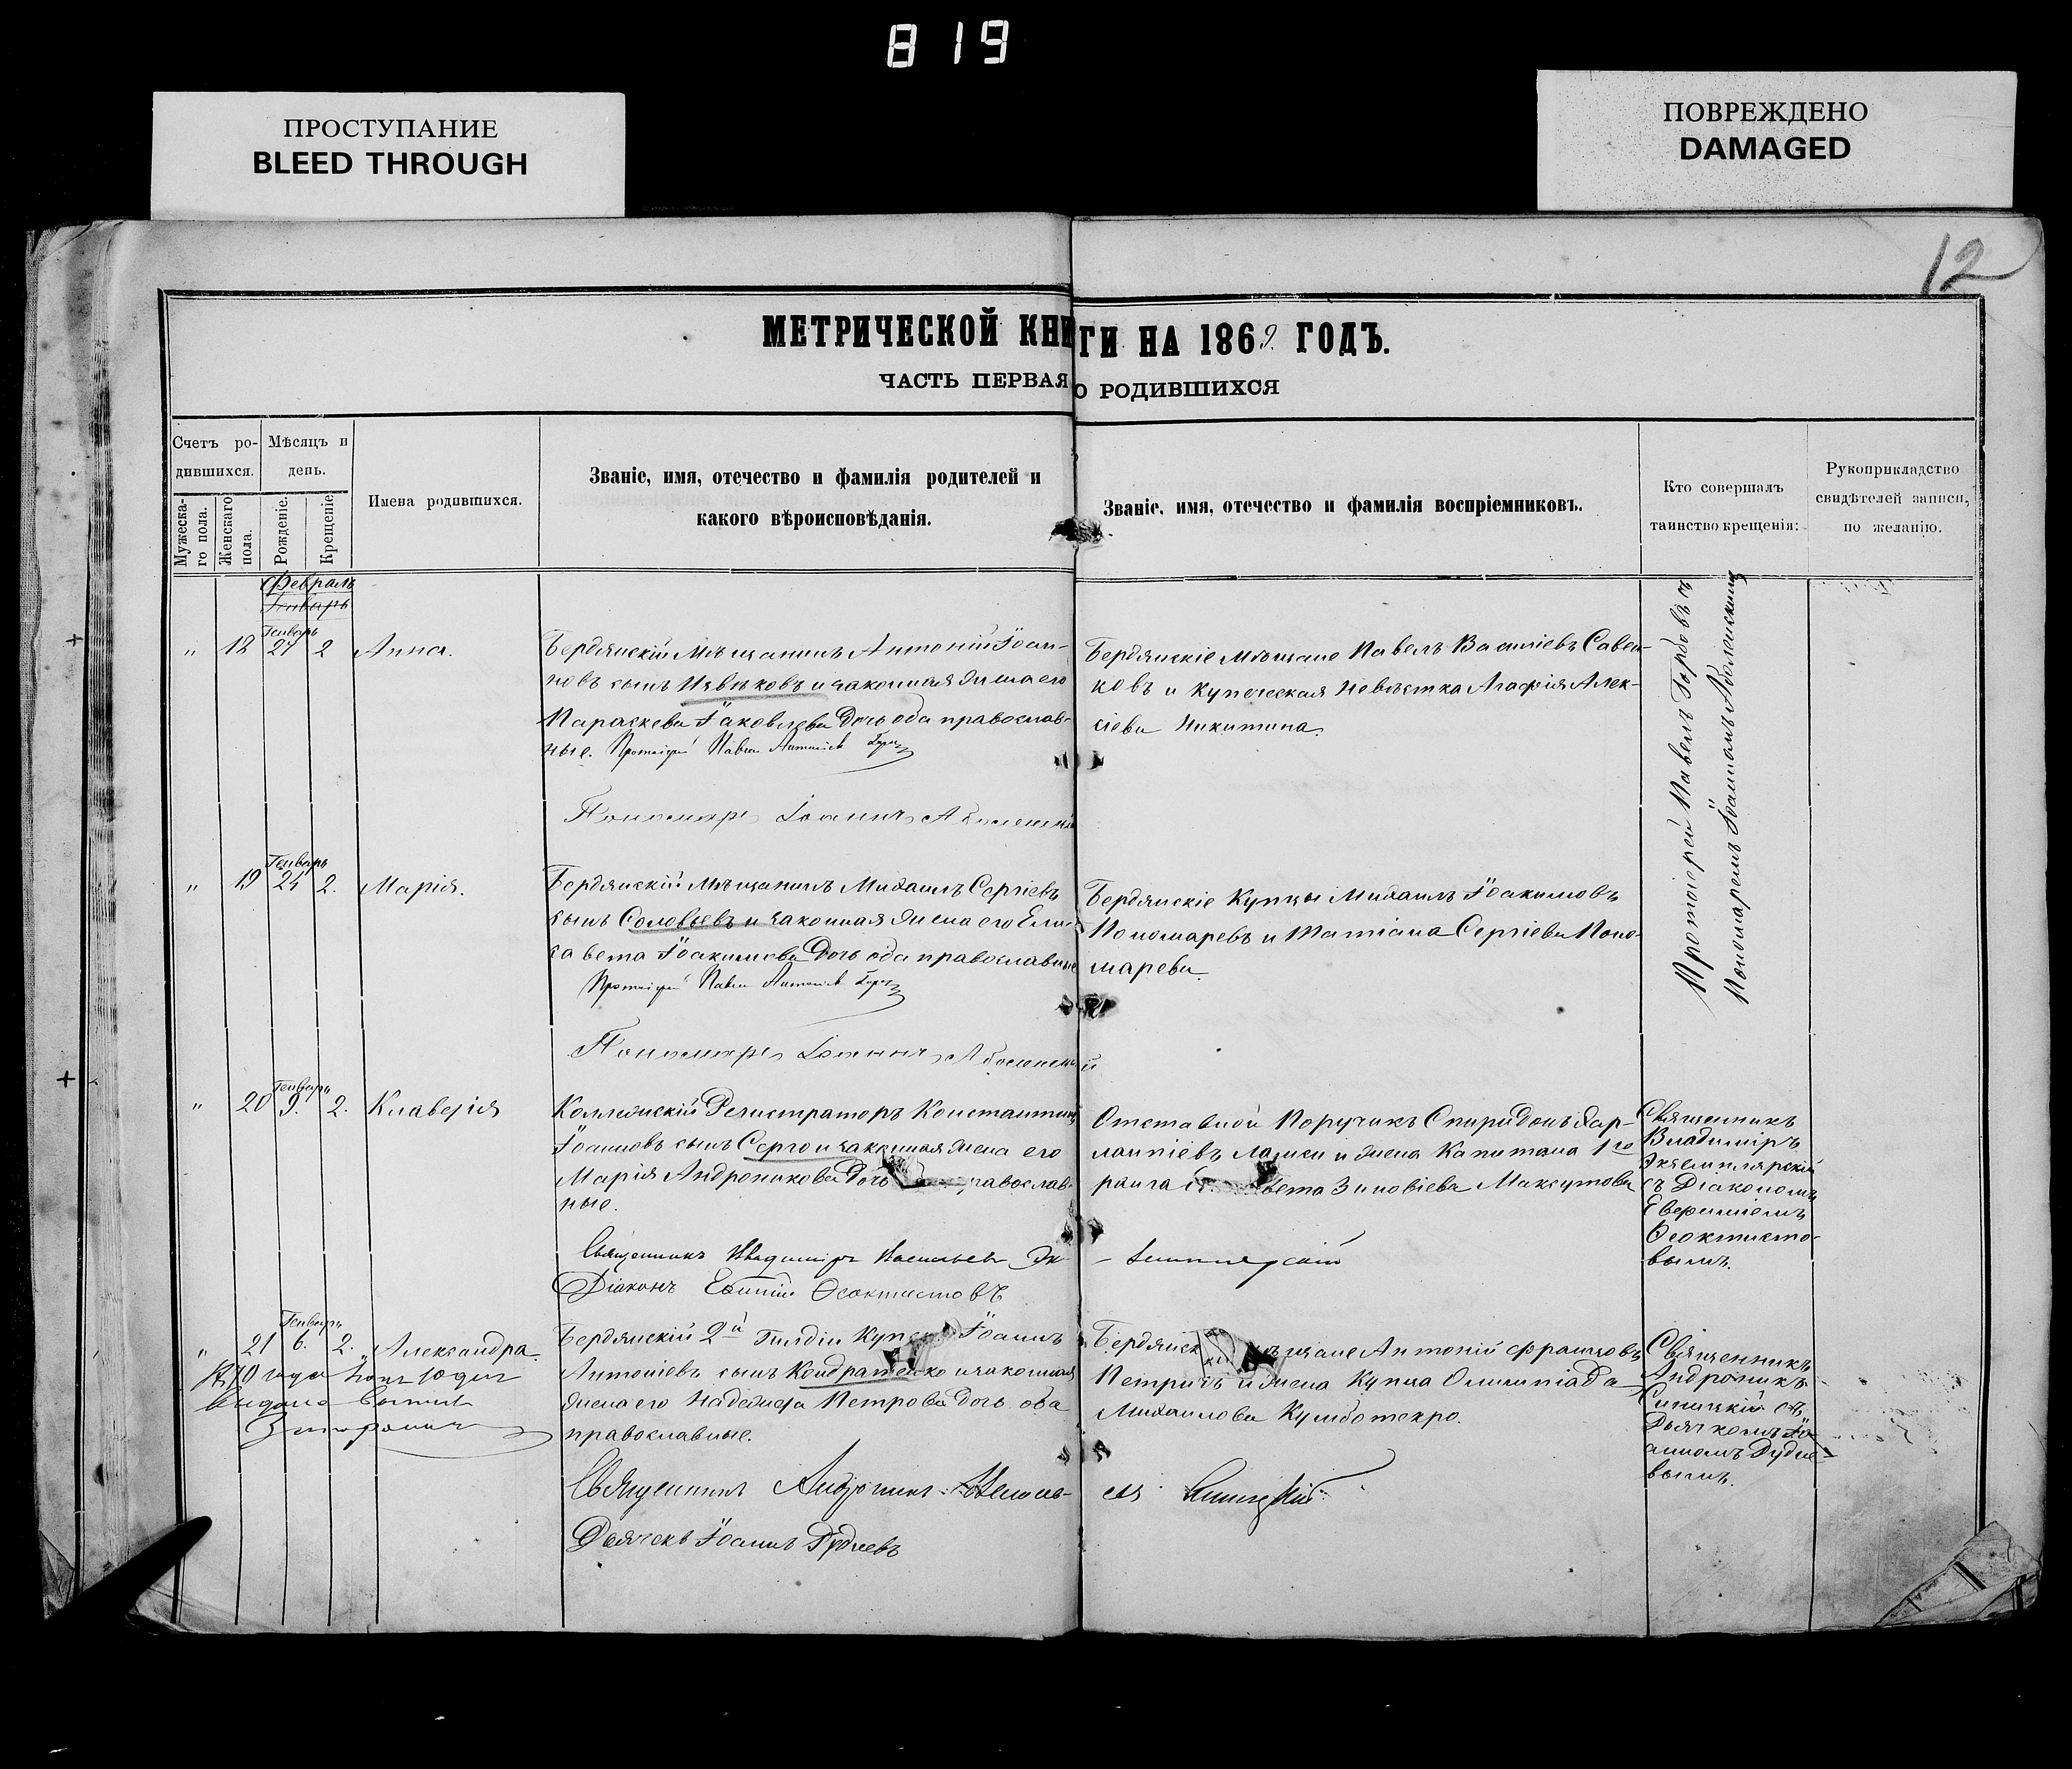 819
ПРОСТУПАНИЕ
BLEED THROUGH
ПОВРЕЖДЕНО
DAMAGED
12
МЕТРИЧЕСКОЙ КНИГИ НА 1869 ГОДЪ.
ЧАСТЬ ПЕРВАЯ О РОДИВШИХСЯ
Счетъ ро-
дившихся.
Мужеска-
го пола.
Женскаго
пола.
Мѣсяцъ и
день.
Рожденіе.
Крещеніе
Имена родившихся.
Званіе, имя, отечество и фамилія родителей и
какого вѣроисповѣданія.
Званіе, имя, отечество и фамилія воспріемниковъ.
Кто совершалъ
таинство крещенія:
Рукоприкладство
свидѣтелей записи,
по желанію.
Февраль
Генварь
Генварь
" 18 27 2 Анна.
Бердянскій Мѣщанинъ Антоній Іоан-
новъ сынъ и законная жена его
Параскева Іаковлева дочь оба православ-
ные. Протоіерей Павелъ
Пономарь Іоаннъ
Бердянскіе Мѣщане Павелъ Василіевъ Савен-
ковъ и купеческая невѣстка Агафія Алек-
сіева Никитина.
Протоіерей Павелъ Горбовъ съ
Пономаремъ Іоанномъ Аболенскимъ
Генварь
" 19 24 2. Марія.
Бердянскій Мѣщанинъ Михаилъ Сергіевъ
сынъ Соловьевъ и законная жена его Ели-
савета Іоакимова дочь оба православные
Протоіерей Павелъ
Пономарь Іоаннъ
Бердянскіе Купцы Михаилъ Іоакимовъ
Пономаревъ и Татіана Сергіева Поно-
марева.
Генварь
" 20 9. 2. Клавдія
Коллежскій Регистраторъ Константинъ
Іоанновъ сынъ Серго и законная жена его
Марія Андроникова дочь православ-
ные.
Священникъ Владиміръ Васильевъ Эк-
Діаконъ Ѳеоктистовъ
Отставной Поручикъ Спиридонъ Хар-
лампіевъ и жена Капитана 1го
ранга Зиновіева Максутова
Священникъ
Владиміръ
Экземплярскій
съ Діакономъ
Евфиміемъ
Ѳеоктисто-
вымъ.
Генварь
" 21 6. 2. Александра.
1870 года
Бердянскій 2й Гильдіи Купецъ Іоаннъ
Антоніевъ сынъ Кондратенко и законная
жена его Надежда Петрова дочь оба
православные.
Священникъ Андроникъ
Дьячекъ Іоаннъ Рудневъ
Бердянскіе мѣщане Антоній Францовъ
Петричъ и жена Купца Олимпіада
Михаилова Кумботекро.
Синицкій
Священникъ
Андроникъ
Синицкій съ
Дьячкомъ Іо-
анномъ Рудне-
вымъ.